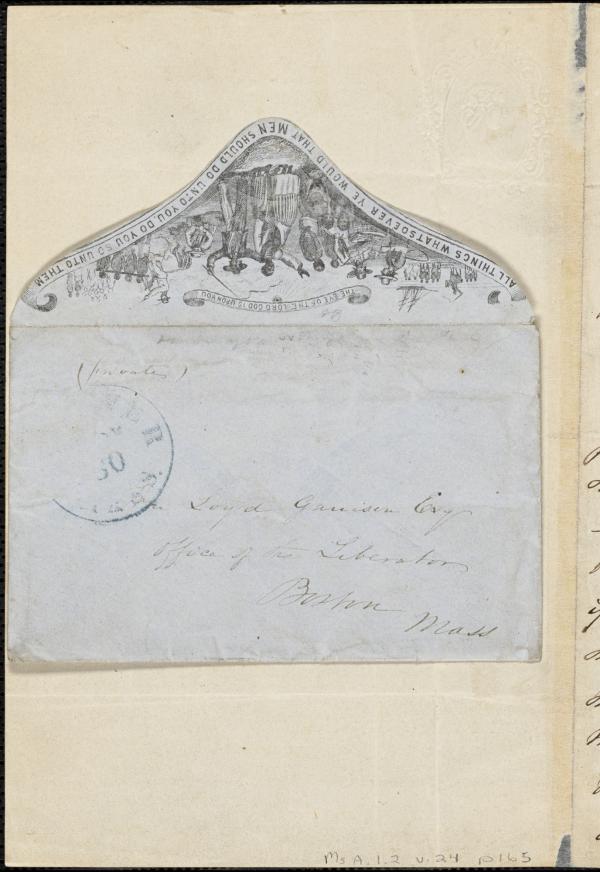 ALL THINGS WHATSOEVER YE WOULD THAT MEN SHOULD DO UNTO YOU, DO YOU SO UNTO THEM
THE EYE OF THE LORD GOD IS UPON YOU
(private)
30
Loyd Garrison Esq
Office of the Liberator
Boston
Mass
Ms A.1.2 v.24 p165